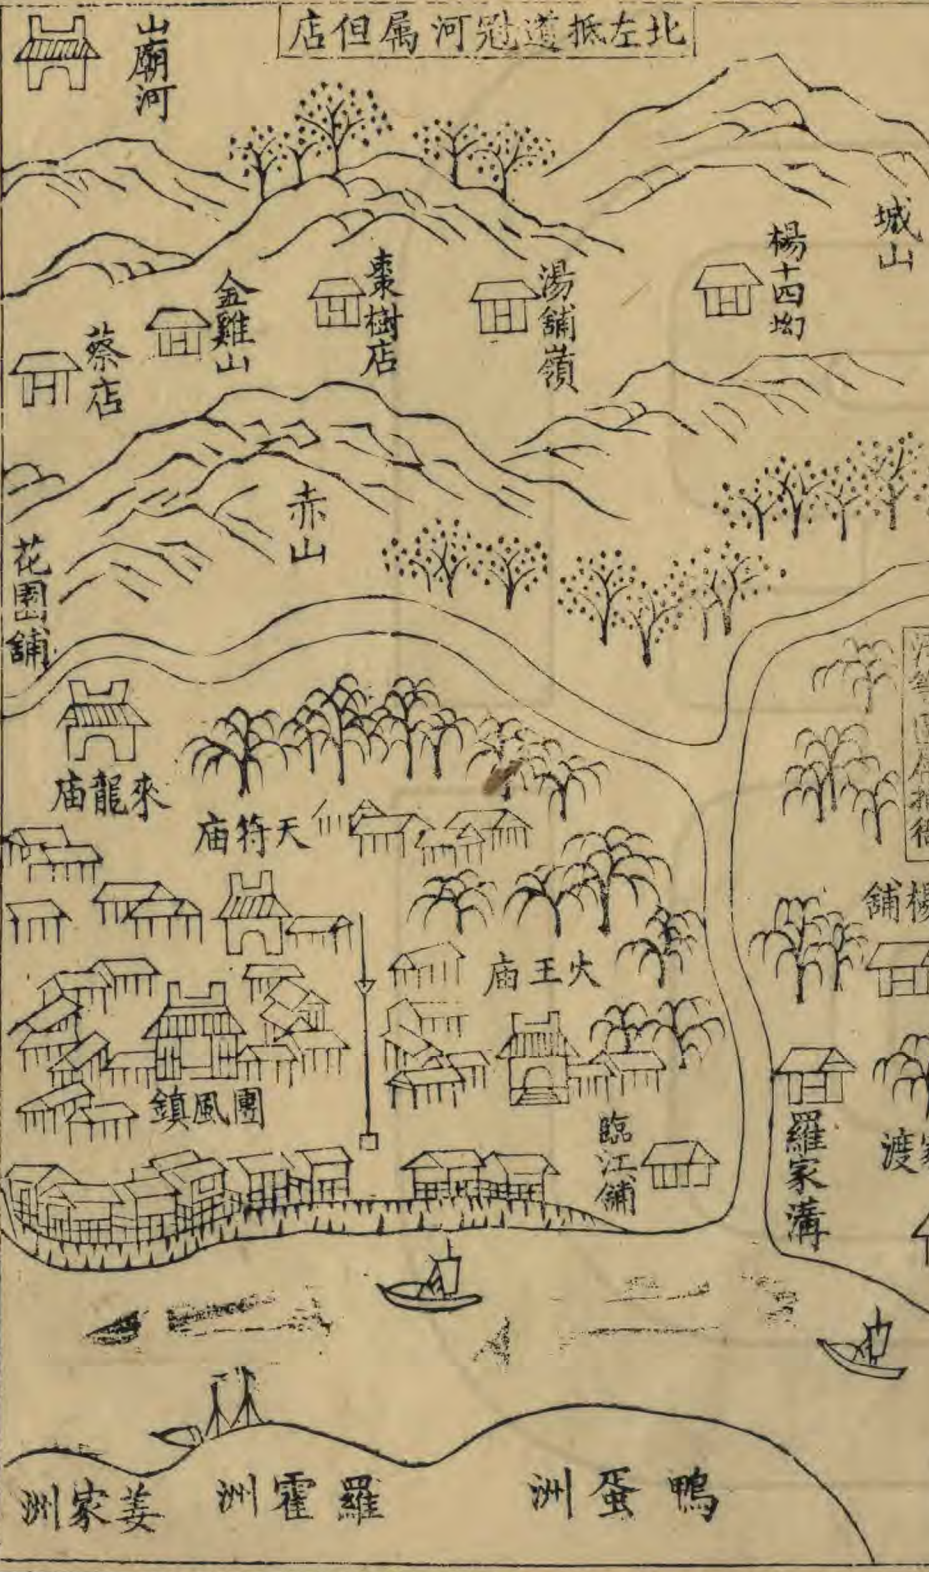 北左抵道冠河属但店
山廟河
城山
楊十四㘭
湯舖嶺
棗樹店
金雞山
蔡店
赤山
花園舖
來龍庙
天符庙
楊舖
火王庙
團風鎮
臨江舖
羅家溝
渡
鴨蛋洲
羅霍洲
姜家洲